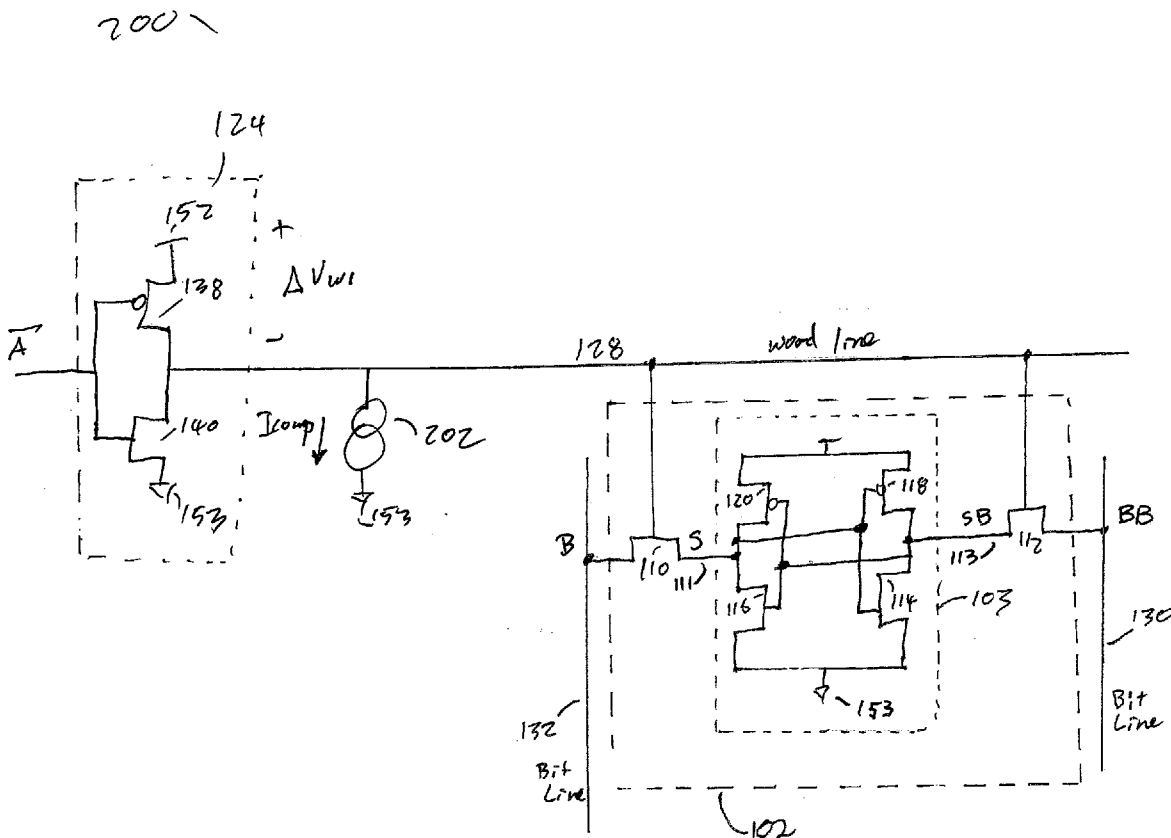 200
124
152
+
138
ΔVwl
A̅
-
128
word line
140
Icomp
202
153
153
120
118
B
S
SB
BB
110
111
112
113
116
114
103
130
153
132
Bit
Line
Bit
Line
102